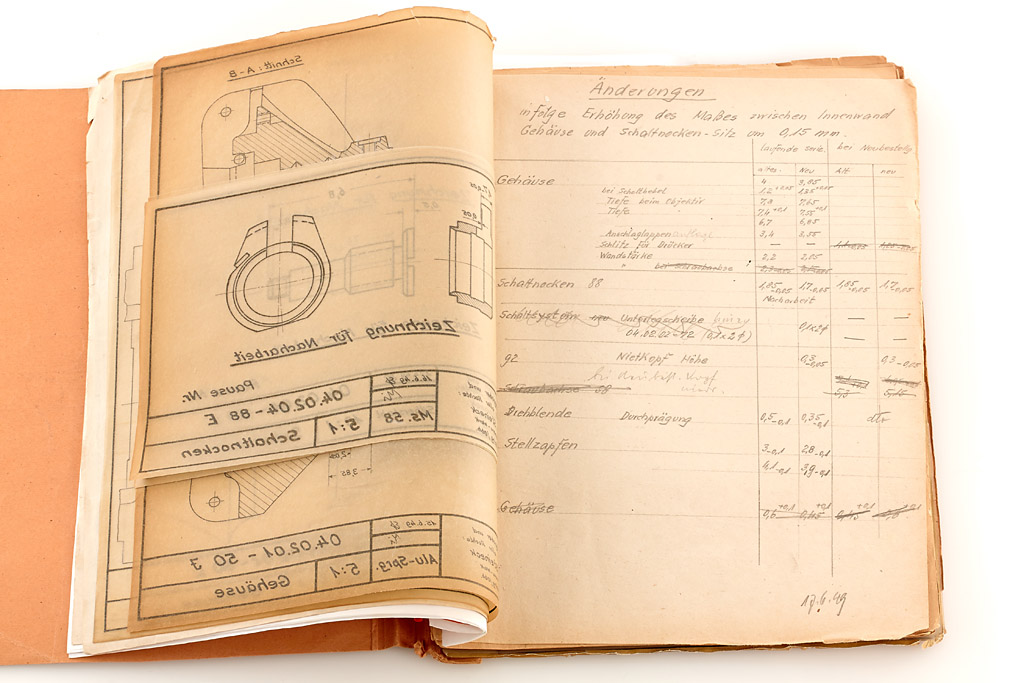 Schnitt: A-B
6,8
Zeichnung für Nacharbeit
Pause Nr.
04.02.04 - 88 E
15.6.49
Schaltnocken
5:1
Ms. 58
3,85
04.02.01 - 50 J
15.6.49
Gehäuse
5:1
Alu-Sprg.
Änderungen
infolge Erhöhung des Maßes zwischen Innenwand
Gehäuse und Schaltnocken-Sitz um 0,15 mm.
laufende Serie bei Neubestellg
altes Neu Alt neu
Gehäuse 4 3,85
bei Schalthebel 1,2 +0,05 1,35 +0,05
Tiefe beim Objektiv 7,8 7,65
Tiefe " 7,4 +0,1 7,55 +0,1
6,7 6,85
Anschlaglappen 3,4 3,55
Schlitz für Drücker — —
Wandstärke 2,2 2,05
"
Schaltnocken 88 1,85 -0,05 1,7 -0,05 1,85 -0,05 1,7 -0,05
Nacharbeit
Schaltsystem Unterlegscheibe — —
04.02.02-72 (0,1x2⌀) 0,1x2⌀ — —
92 Nietkopf Höhe 0,3 -0,05 0,3 -0,05
88
Drehblende Durchprägung 0,5 -0,1 0,35 -0,1 dto
Stellzapfen 3 -0,1 2,8 -0,1
4,1 -0,1 3,9 -0,1
Gehäuse 0,6 +0,1 0,45 +0,1 0,45 +0,1
17.6.49